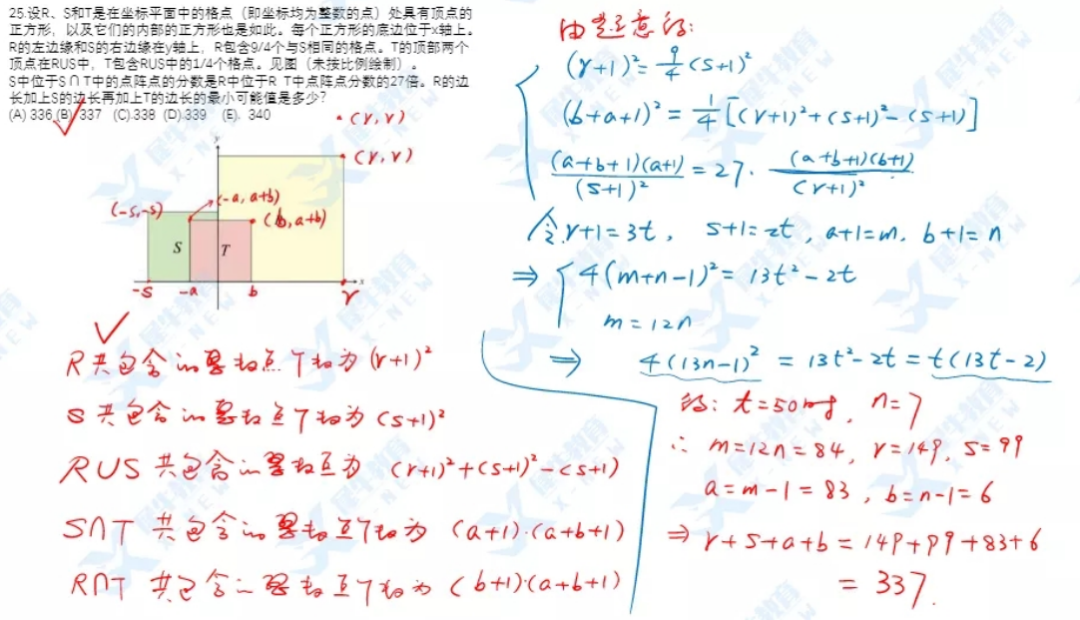 25.设R、S和T是在坐标平面中的格点（即坐标均为整数的点）处具有顶点的
正方形，以及它们的内部的正方形也是如此。每个正方形的底边位于x轴上。
R的左边缘和S的右边缘在y轴上，R包含9/4个与S相同的格点。T的顶部两个
顶点在RUS中，T包含RUS中的1/4个格点。见图（未按比例绘制）。
S中位于S∩T中的点阵点的分数是R中位于R T中点阵点分数的27倍。R的边
长加上S的边长再加上T的边长的最小可能值是多少？
(A) 336 (B) 337 (C).338 (D).339 (E). 340
(r, r)
y
(r, r)
(-a, a+b)
(-s,-s)
(b, a+b)
S
T
x
-s
-a
b
r
R共包含的整数点个数为 (r+1)²
S共包含的整数点个数为 (s+1)²
RUS 共包含的整数点为 (r+1)²+(s+1)²-(s+1)
S∩T 共包含的整数点个数为 (a+1)·(a+b+1)
R∩T 共包含的整数点个数为 (b+1)·(a+b+1)
由题意得:
(r+1)²=9/4(s+1)²
(b+a+1)²=1/4[(r+1)²+(s+1)²-(s+1)]
(a+b+1)(a+1)/(s+1)²=27·(a+b+1)(b+1)/(r+1)²
令 r+1=3t, s+1=2t, a+1=m, b+1=n
⇒ 4(m+n-1)²=13t²-2t
m=12n
⇒ 4(13n-1)²=13t²-2t=t(13t-2)
得: t=50时, n=7
∴ m=12n=84, r=149, s=99
a=m-1=83, b=n-1=6
⇒ r+s+a+b=149+99+83+6
=337.
犀牛教育
X-NEW